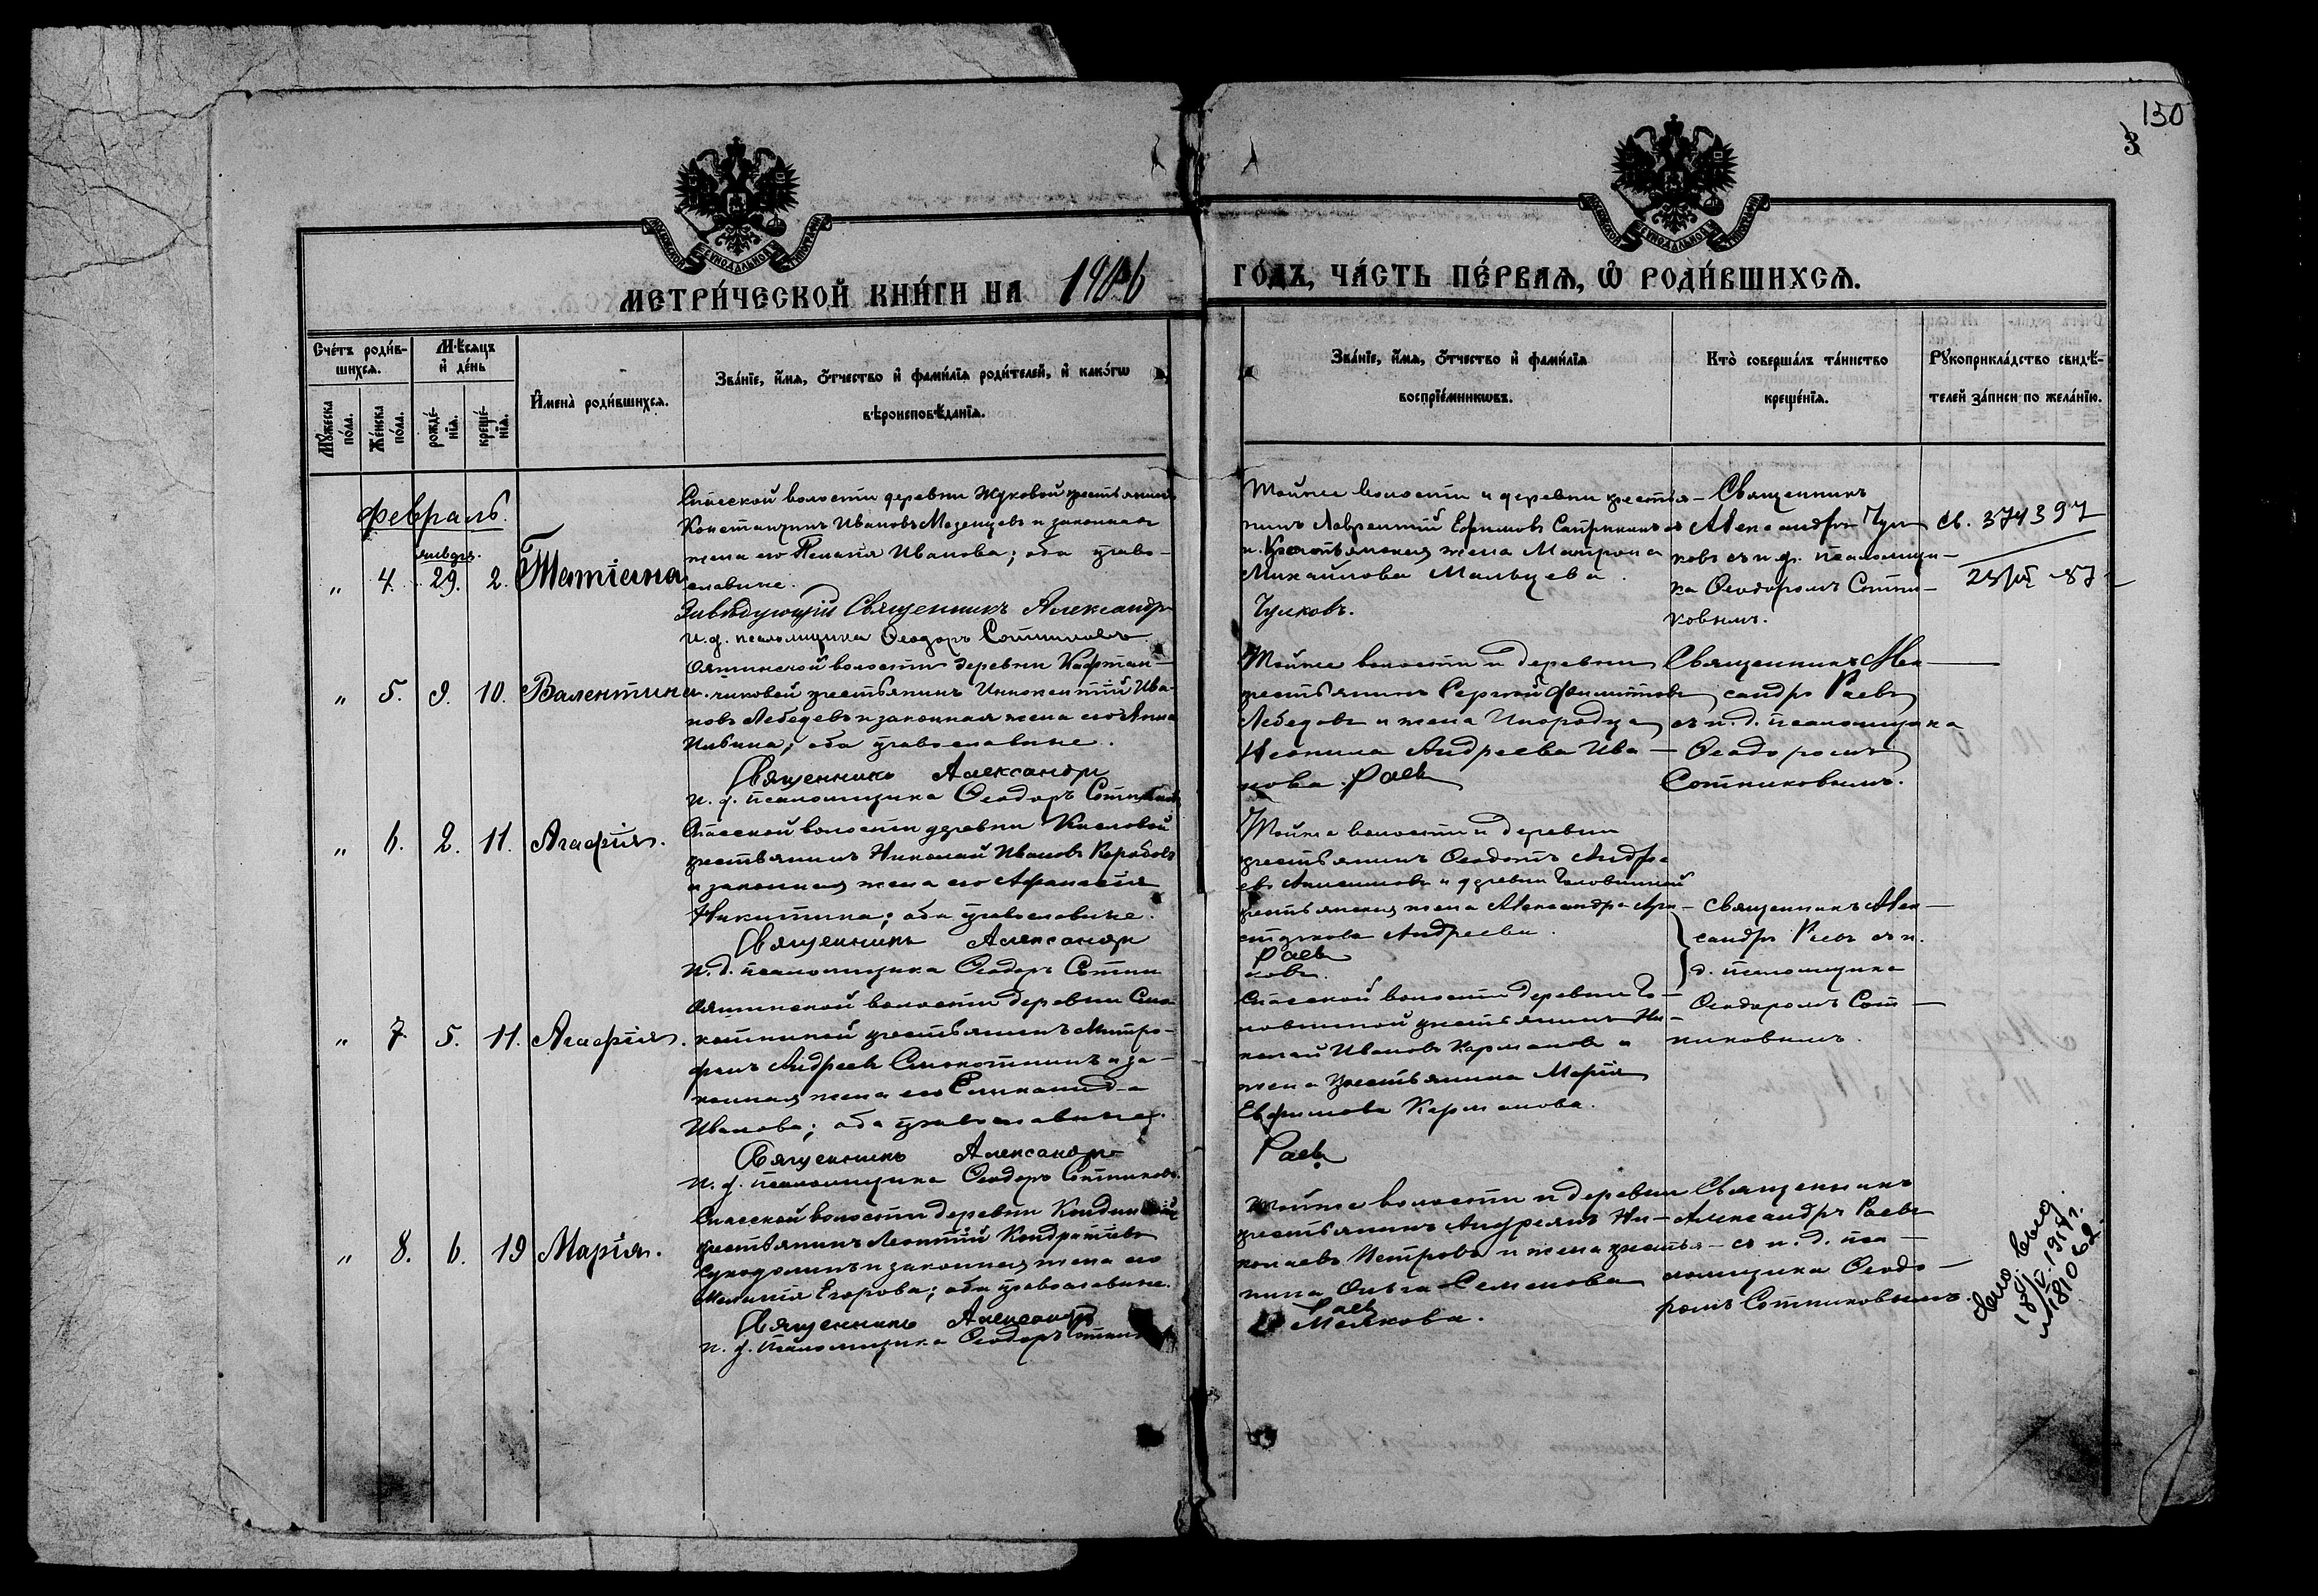 130
3
МЕТРИ́ЧЕСКОЙ КНИ́ГИ НА 1906 ГО́ДЪ, ЧА́СТЬ ПЕ́РВАЯ, Ѡ РОДИ́ВШИХСЯ.
Сче́тъ роди́в-
шихся.
Мꙋ́жеска по́ла.
Же́нска по́ла.
Мѣ́сяцъ и де́нь
рожде́-
нїя.
креще́-
нїя.
Имена̀ роди́вшихся.
Зва́нїе, и́мя, ѻ҆́тчество и фами́лїя роди́телей, и како́гѡ
вѣроисповѣ́данїя.
Зва́нїе, и́мя, ѻ҆́тчество и фами́лїя
воспрїе́мникѡвъ.
Кто̀ соверша́лъ та́инство
креще́нїя.
Рꙋкоприкла́дство свидѣ́-
телей за́писи по жела́нїю.
Февраль.
январь.
" 4. 29. 2. Татіана
Спасской волости деревни Жуковой крестьянинъ
Константинъ Ивановъ Мезенцевъ и законная
жена его Пелагія Иванова; оба право-
славные.
Завѣдующій Священникъ Александръ
и. д. псаломщика Ѳеодоръ Сотниковъ
Тойже волости и деревни крестья-
нинъ Лаврентій Ефимовъ
и крестьянская жена Матрона
Михайлова Мальцева.
Чулковъ.
Священникъ
Александръ Чул-
ковъ съ и. д. псаломщи-
ка Ѳеодоромъ Сотни-
ковымъ.
св. 374397
" 5. 9. 10. Валентина.
волости деревни Кафтан-
чиковой крестьянинъ Иннокентій Ива-
новъ Лебедевъ и законная жена его Анна
оба православные.
Священникъ Александръ
и. д. псаломщика Ѳеодоръ Сотниковъ
Тойже волости и деревни
крестьянинъ Сергій Филиповъ
Лебедевъ и жена инородца
Неонила Андреева Ива-
нова. Раевъ
Священникъ Алек-
сандръ Раевъ
съ и. д. псаломщика
Ѳеодоромъ
Сотниковымъ.
" 6. 2. 11. Агафія.
Спасской волости деревни Кисловой
крестьянинъ Николай Ивановъ Коробовъ
и законная жена его Афанасія
Никитина; оба православные.
Священникъ Александръ
и. д. псаломщика Ѳеодоръ Сотни
Тойже волости и деревни
крестьянинъ Ѳеодотъ Андре-
евъ и деревни Головиной
крестьянская жена Александра
Андреева.
Раевъ
ковъ.
Священникъ Алек-
сандръ Раевъ съ и.
д. псаломщика
Ѳеодоромъ Сот-
никовымъ.
" 7. 5. 11. Агафія.
волости деревни Смо-
котиной крестьянинъ Митро-
фанъ Андреевъ Смокотнинъ и за-
конная жена его
Иванова; оба православные.
Священникъ Александръ
и. д. псаломщика Ѳеодоръ Сотниковъ.
Спасской волости деревни Го-
ловиной крестьянинъ Ни-
колай Ивановъ Кармановъ и
жена крестьянина Марія
Евфимова Карманова.
Раевъ
" 8. 6. 19 Марія.
Спасской волости деревни
крестьянинъ Леонтій Кондратьевъ
и законная жена его
Меланія Егорова; оба православные.
Священникъ Александръ
и. д. псаломщика Ѳеодоръ Сотник
Тойже волости и деревни
крестьянинъ Андреянъ Ни-
колаевъ Петровъ и жена крестья-
нина Ольга Семенова
Раевъ
Священникъ
Александръ Раевъ
съ и. д. пса-
ломщика Ѳеодо-
ромъ Сотниковымъ.